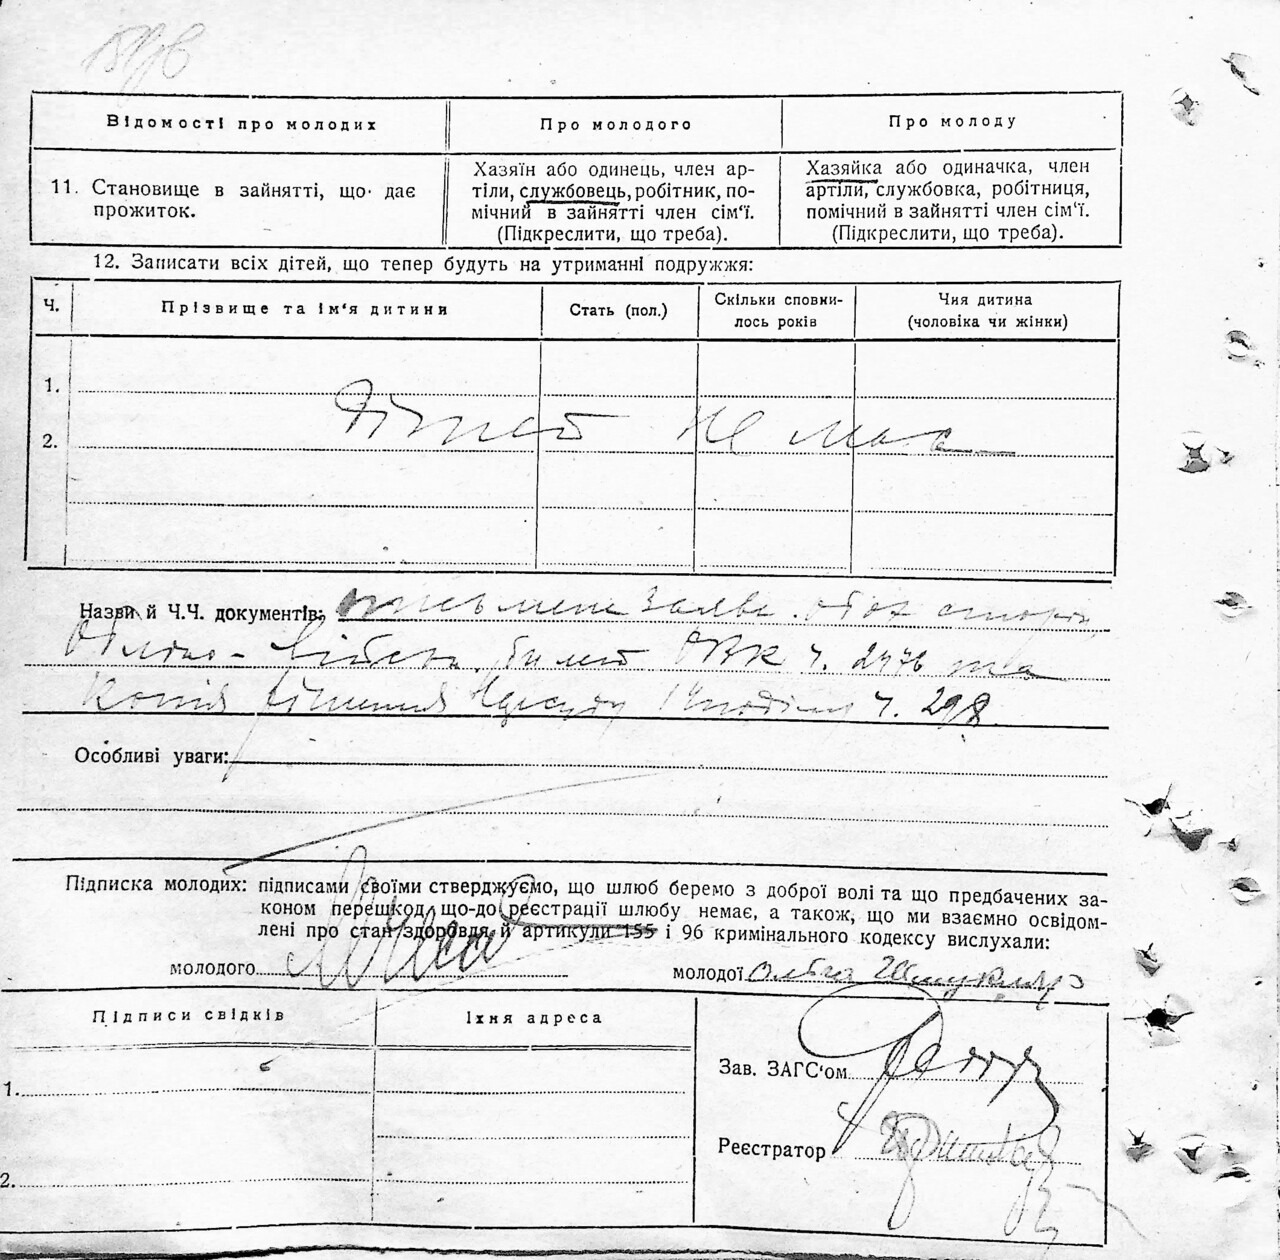 Відомості про молодих
Про молодого
Про молоду
11. Становище в зайнятті, що дає
прожиток.
Хазяїн або одинець, член ар-
тіли, службовець, робітник, по-
мічний в зайнятті член сім'ї.
(Підкреслити, що треба).
Хазяйка або одиначка, член
артіли, службовка, робітниця,
помічний в зайнятті член сім'ї.
(Підкреслити, що треба).
12. Записати всіх дітей, що тепер будуть на утриманні подружжя:
Ч.
Прізвище та ім'я дитини
Стать (пол.)
Скільки сповни-
лось років
Чия дитина
(чоловіка чи жінки)
1.
2.
Дітей не має
Назви й Ч.Ч. документів: заява обох
військ. білет ОВК ч. 2476 та
копія рішення Нарсуду ч. 298
Особливі уваги:
Підписка молодих: підписами своїми стверджуємо, що шлюб беремо з доброї волі та що предбачених за-
коном перешкод що-до реєстрації шлюбу немає, а також, що ми взаємно освідом-
лені про стан здоровля й артикули 155 і 96 кримінального кодексу вислухали:
молодого
молодої Ольга
Підписи свідків
Їхня адреса
1.
2.
Зав. ЗАГС'ом
Реєстратор